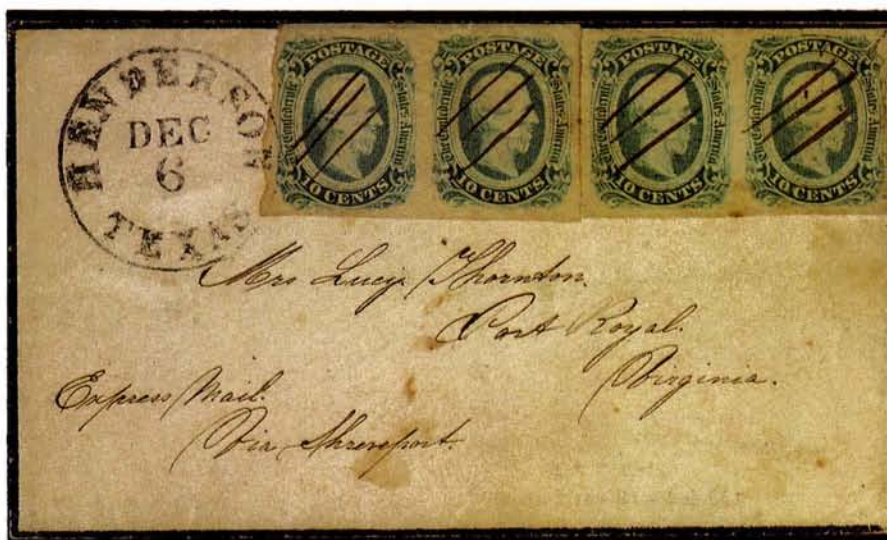 HENDERSON
DEC
6
TEXAS
POSTAGE
The Confederate States America
10 CENTS
POSTAGE
The Confederate States America
10 CENTS
POSTAGE
The Confederate States America
10 CENTS
POSTAGE
The Confederate States America
10 CENTS
Mrs Lucy Thornton.
Port Royal.
Virginia.
Express Mail.
Via Shreveport.